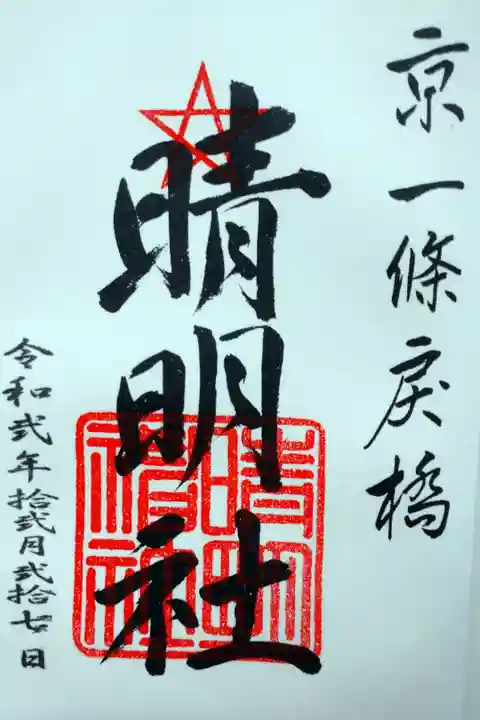 京一條戻橋
晴明社
令和弐年拾弐月弐拾七日
晴明神社